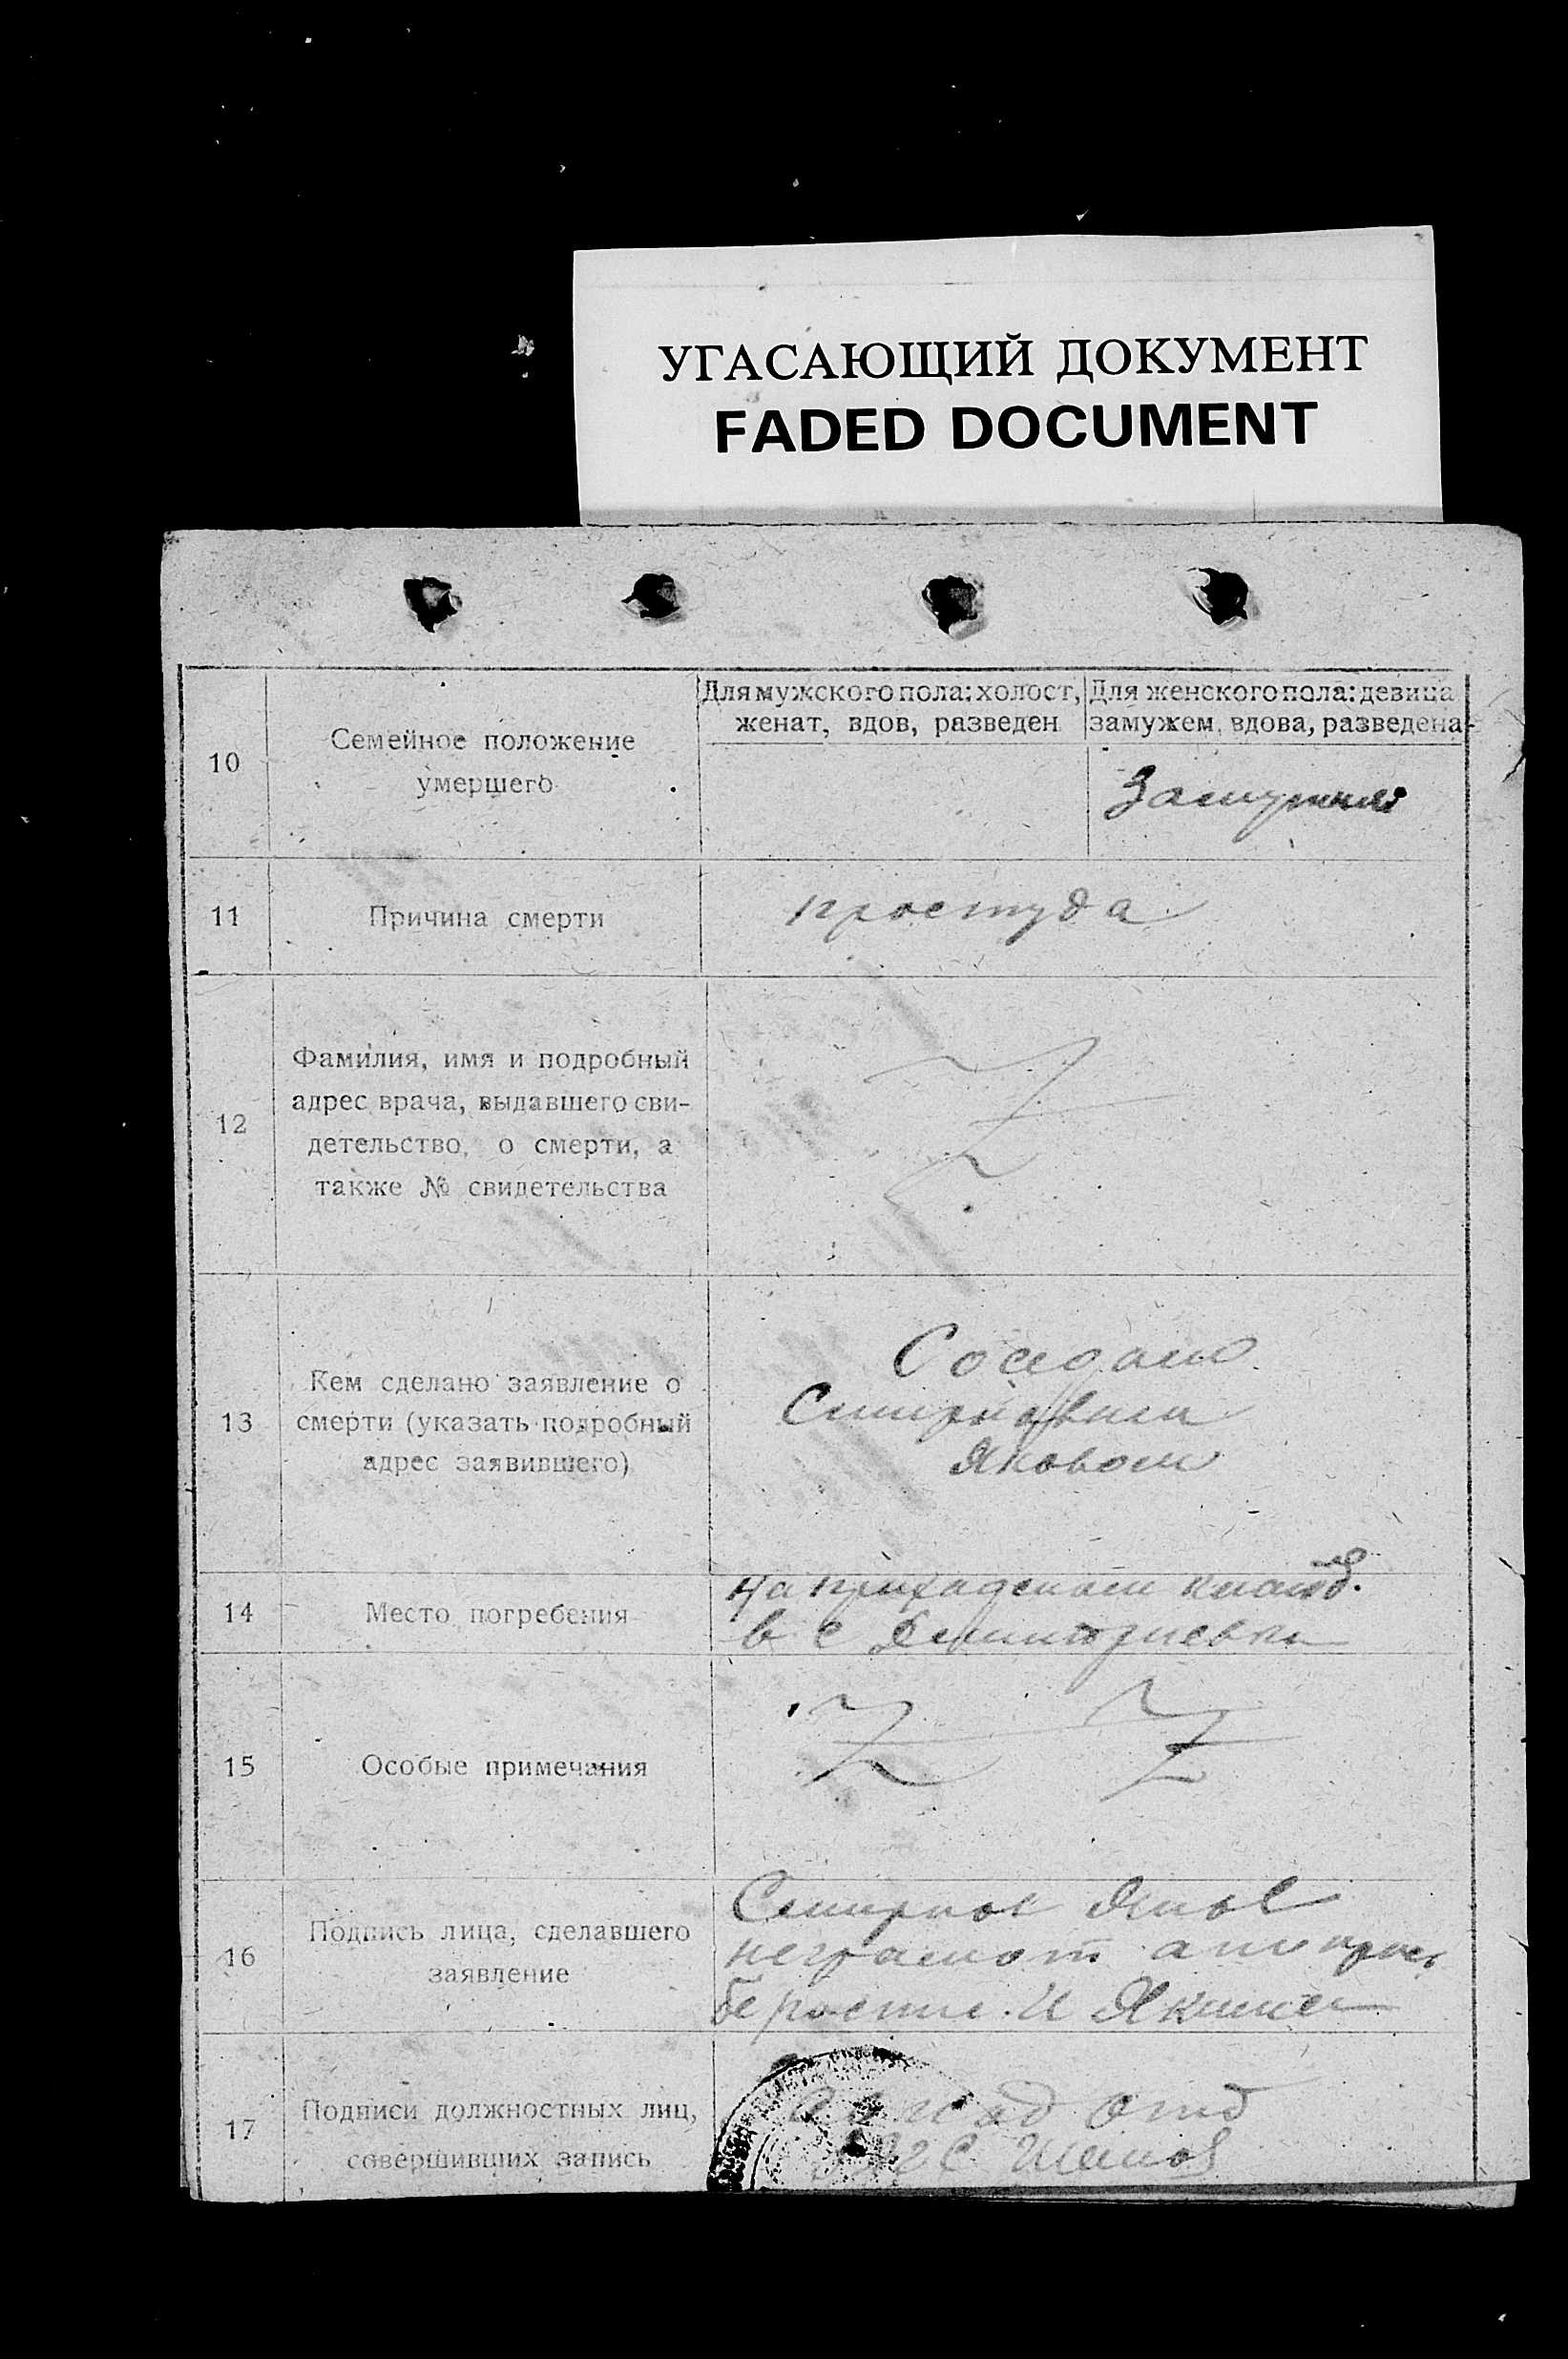 УГАСАЮЩИЙ ДОКУМЕНТ
FADED DOCUMENT
10
Семейное положение
умершего
Для мужского пола: холост,
женат, вдов, разведен
Для женского пола: девица
замужем, вдова, разведена
Замужняя
11
Причина смерти
простуда
12
Фамилия, имя и подробный
адрес врача, выдавшего сви-
детельство, о смерти, а
также № свидетельства
13
Кем сделано заявление о
смерти (указать подробный
адрес заявившего)
Соседом
Смирновым
Яковом
14
Место погребения
на приходском кладб.
в с Дмитриевка
15
Особые примечания
16
Подпись лица, сделавшего
заявление
Смирнов Яков
неграмот а по
И Якимов
17
Подписи должностных лиц,
совершивших запись
отд